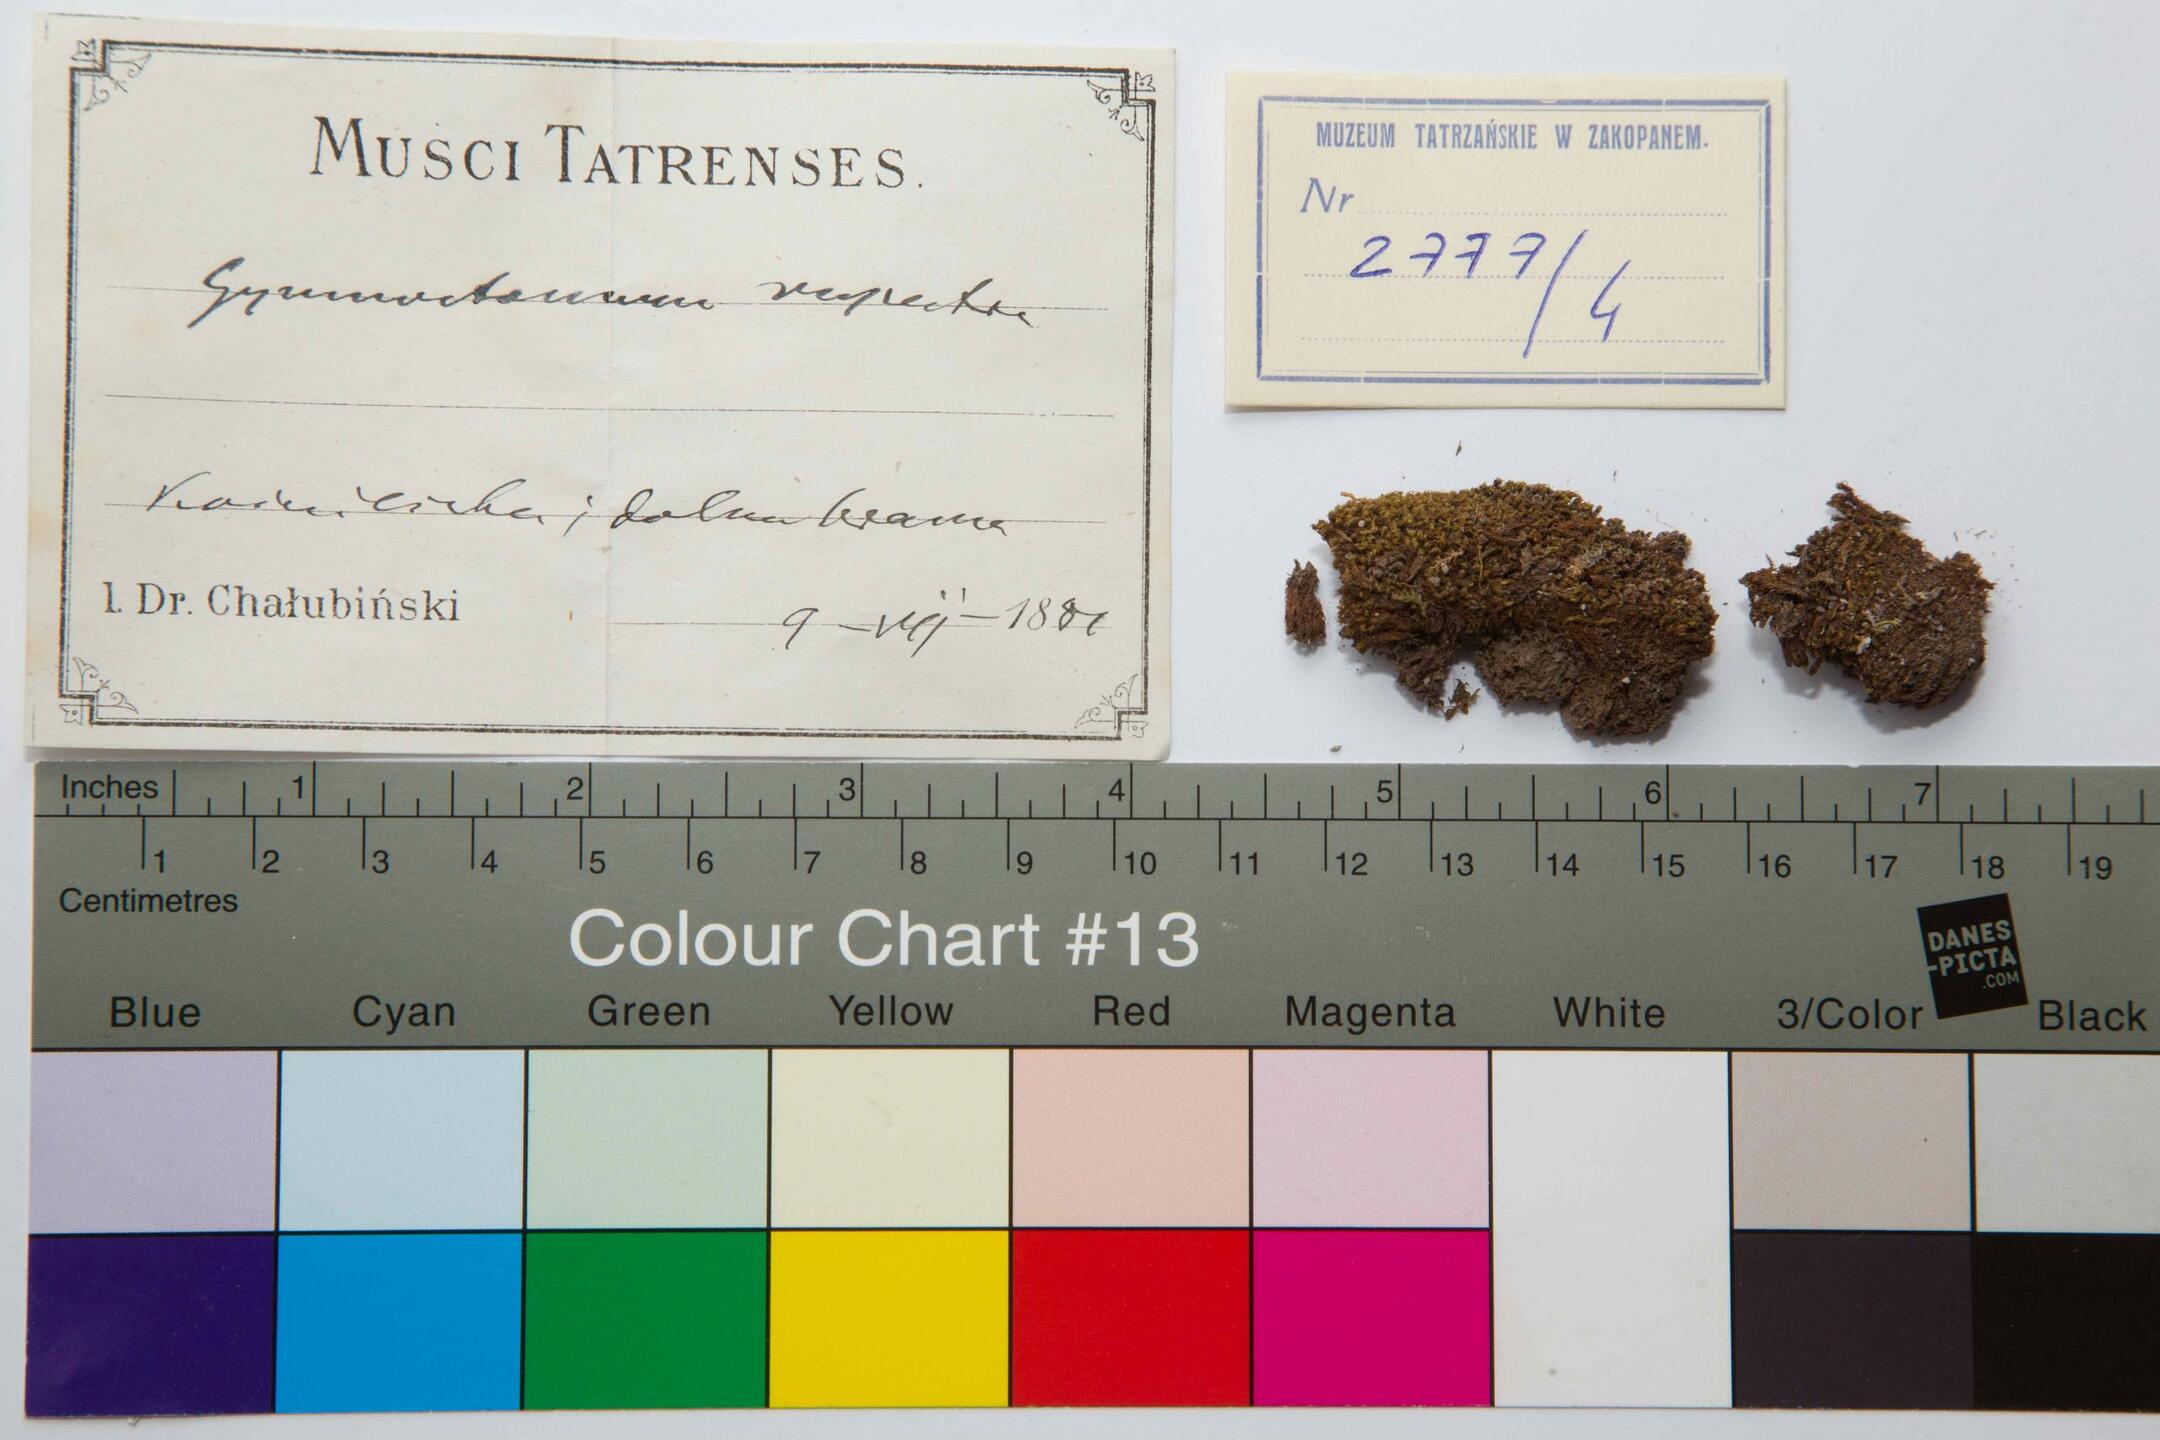 MUSCI TATRENSES.
Gymnostomum rupestre
Kościeliska; dolna brama
l. Dr. Chałubiński
9-VII-1881
MUZEUM TATRZAŃSKIE W ZAKOPANEM.
Nr
2777/4
Inches 1 2 3 4 5 6 7
1 2 3 4 5 6 7 8 9 10 11 12 13 14 15 16 17 18 19
Centimetres
Colour Chart #13
DANES
-PICTA
.COM
Blue Cyan Green Yellow Red Magenta White 3/Color Black